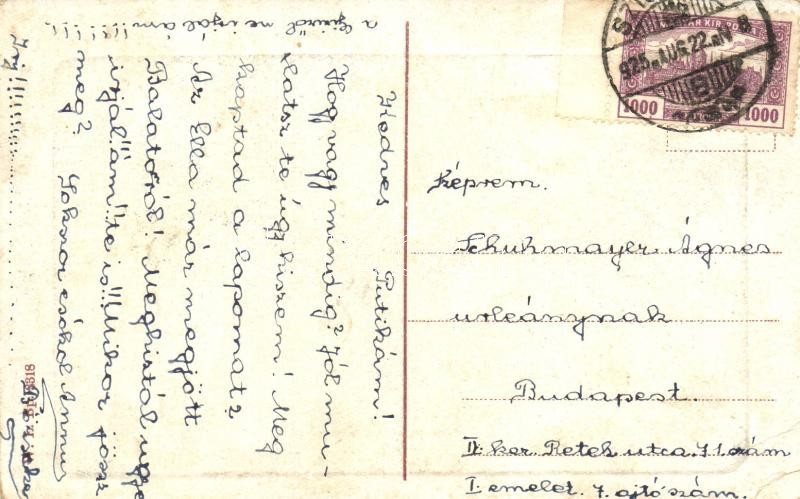 Kedves Putikám!
Hogy vagy mindig? Jól mu-
latsz te úgy hiszem! Meg
kaptad a lapomat?
Az Ella már megjött
Balatonról! Meghíztál ugye
írjál "ám" te is!!! Mikor jössz
meg? Sokszor csókol Annus
Írj!!!!!!!
a Giziről ne írjál ám !!!!!!!
MAGYAR KIR. POSTA
1000 1000
925 AUG. 22
Képrem.
Schuhmayer Ágnes
urleánynak
Budapest.
II. ker. Retek utca 71. szám
I. emelet. 7. ajtószám.